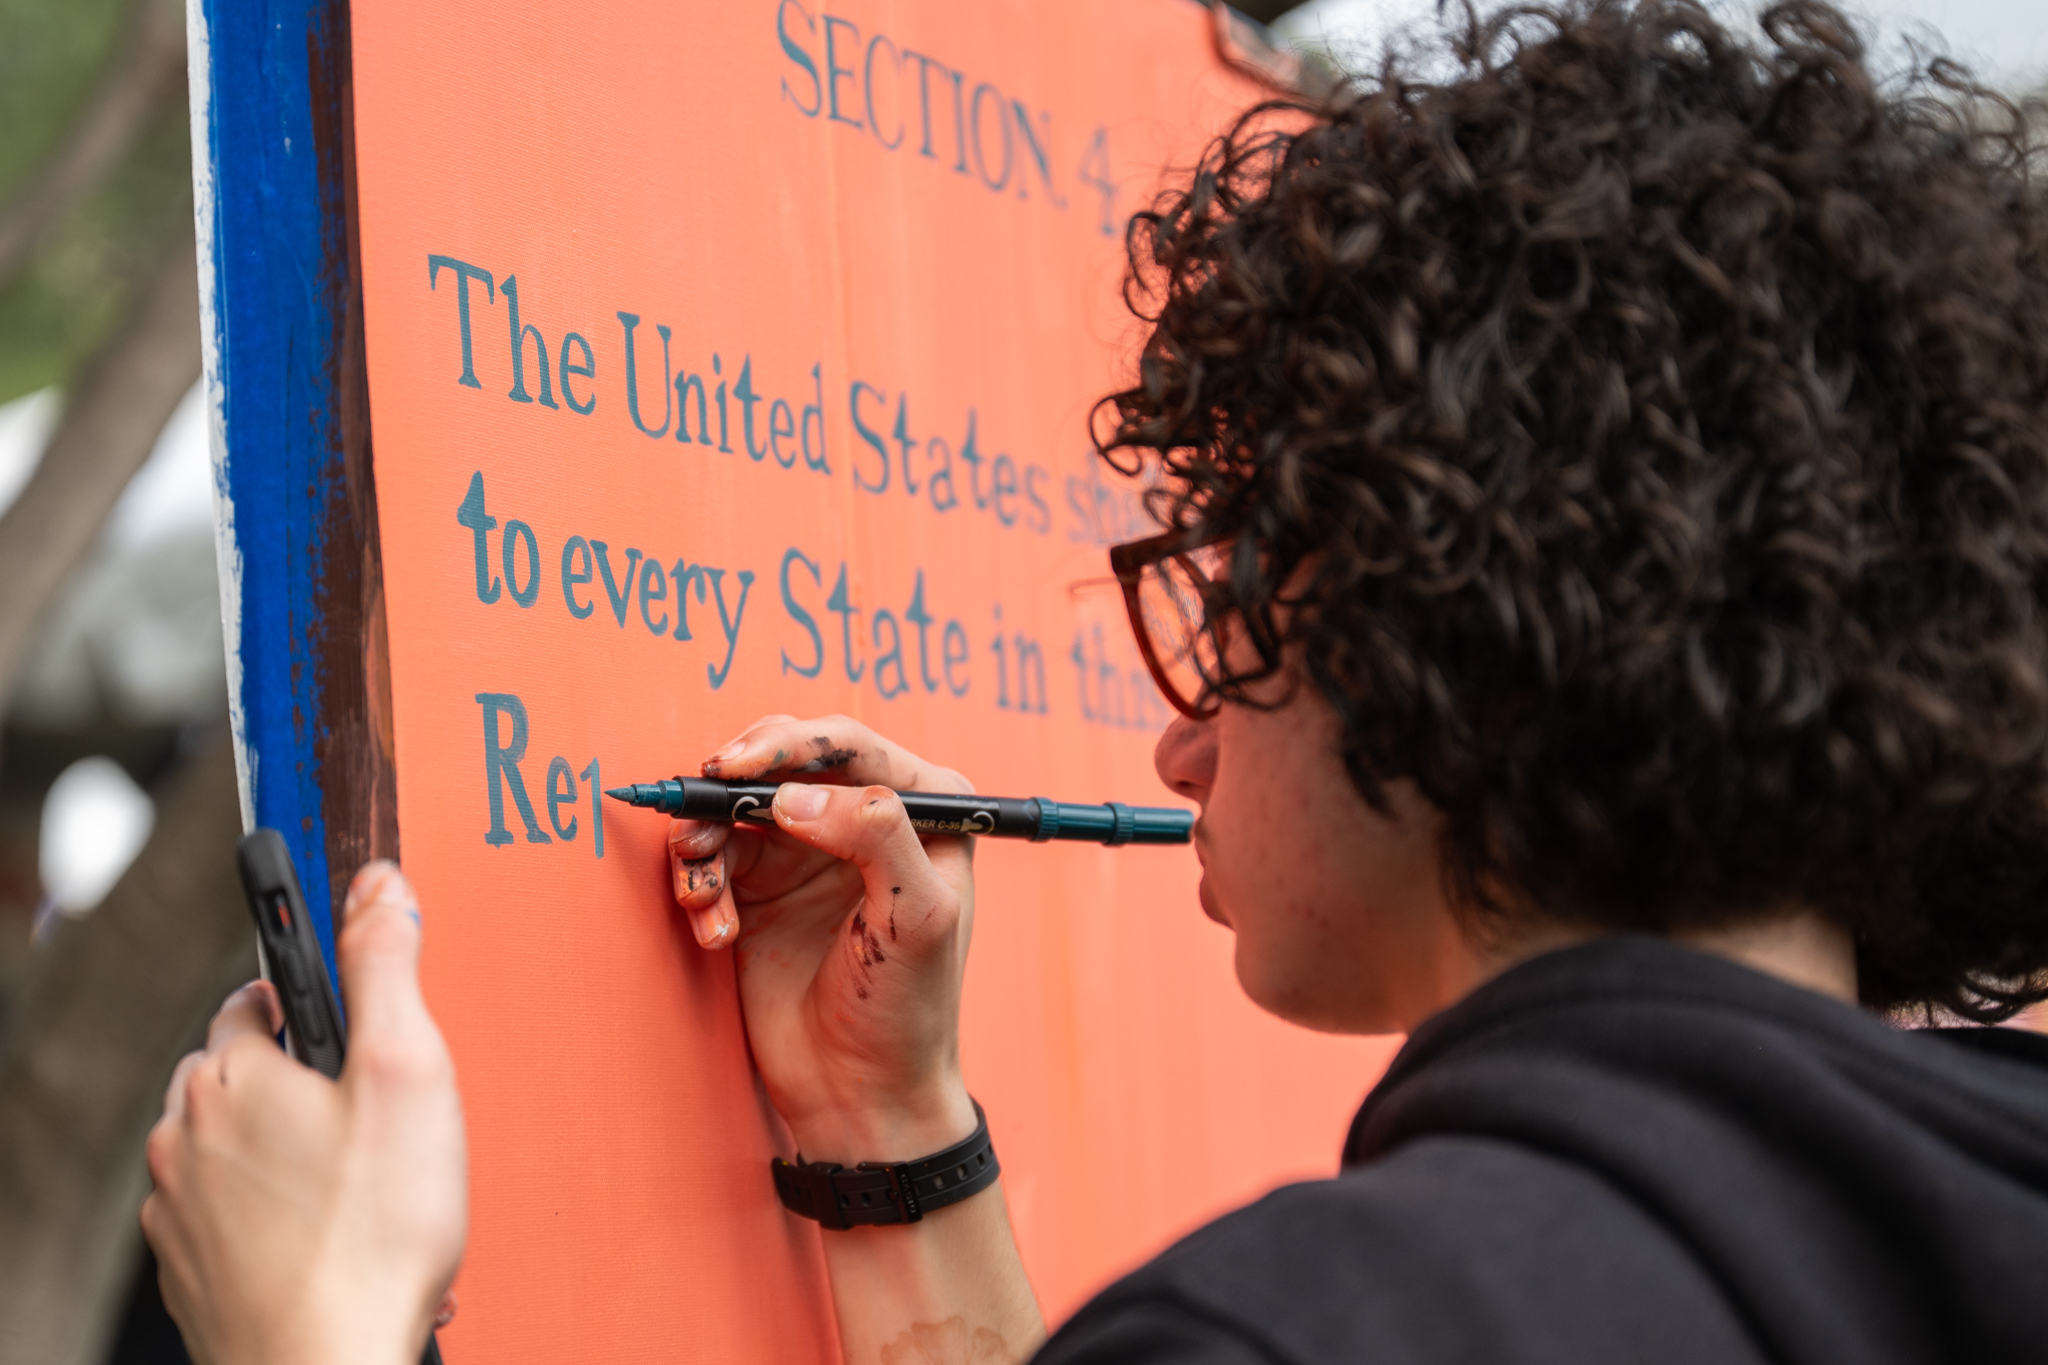 SECTION. 4.
The United States
to every State in this
Re
RKER C-35
CASIO